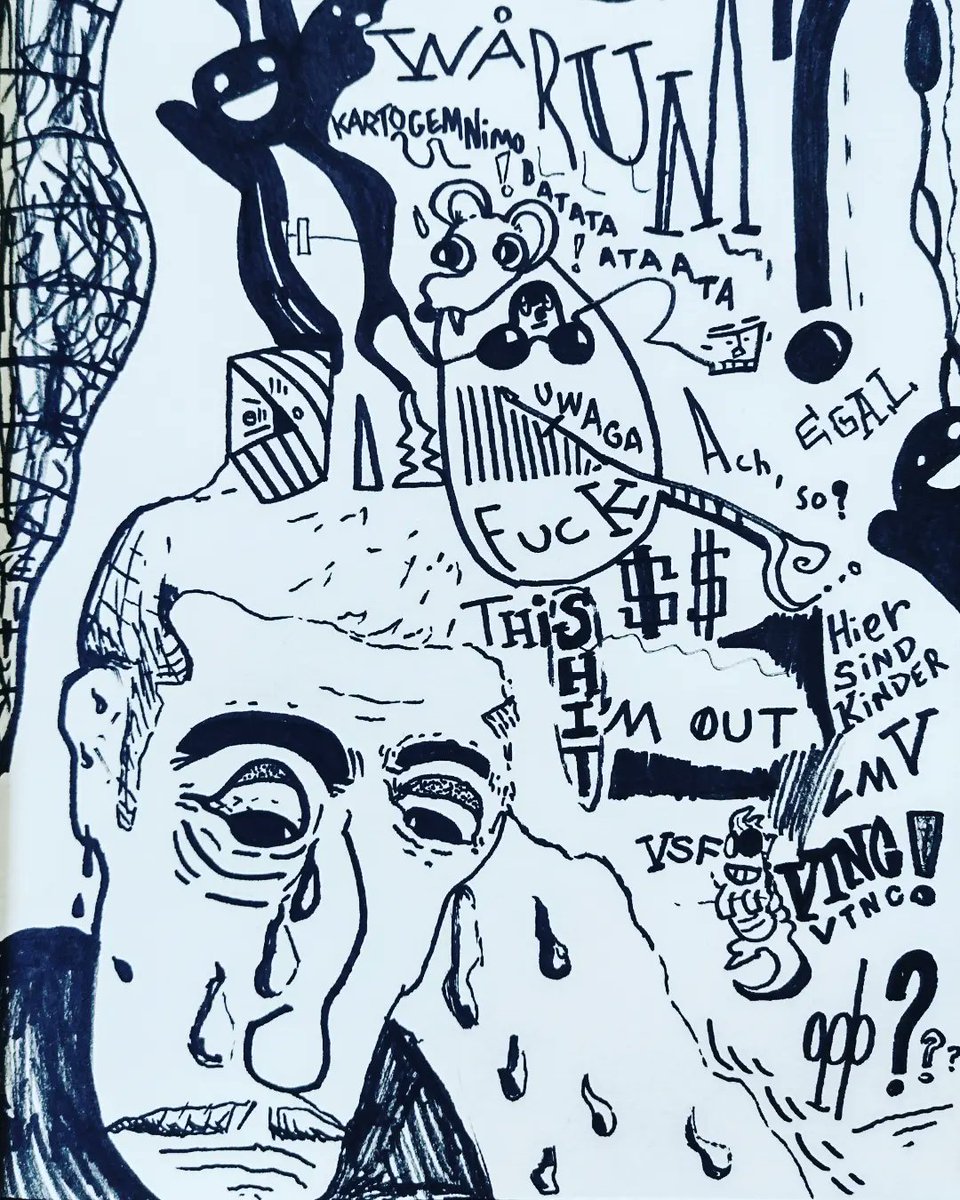 WÅRUM?
KARTOGEMNimo
! BATATA
! ATAATA
UWAGA
FUCK
Ach, EGAL
so?
$$
THiS
SHIT
I'M OUT
...o
Hier
SiND
KiNDER
LMV
VSF
VTNG!
VTNGO
qqb???